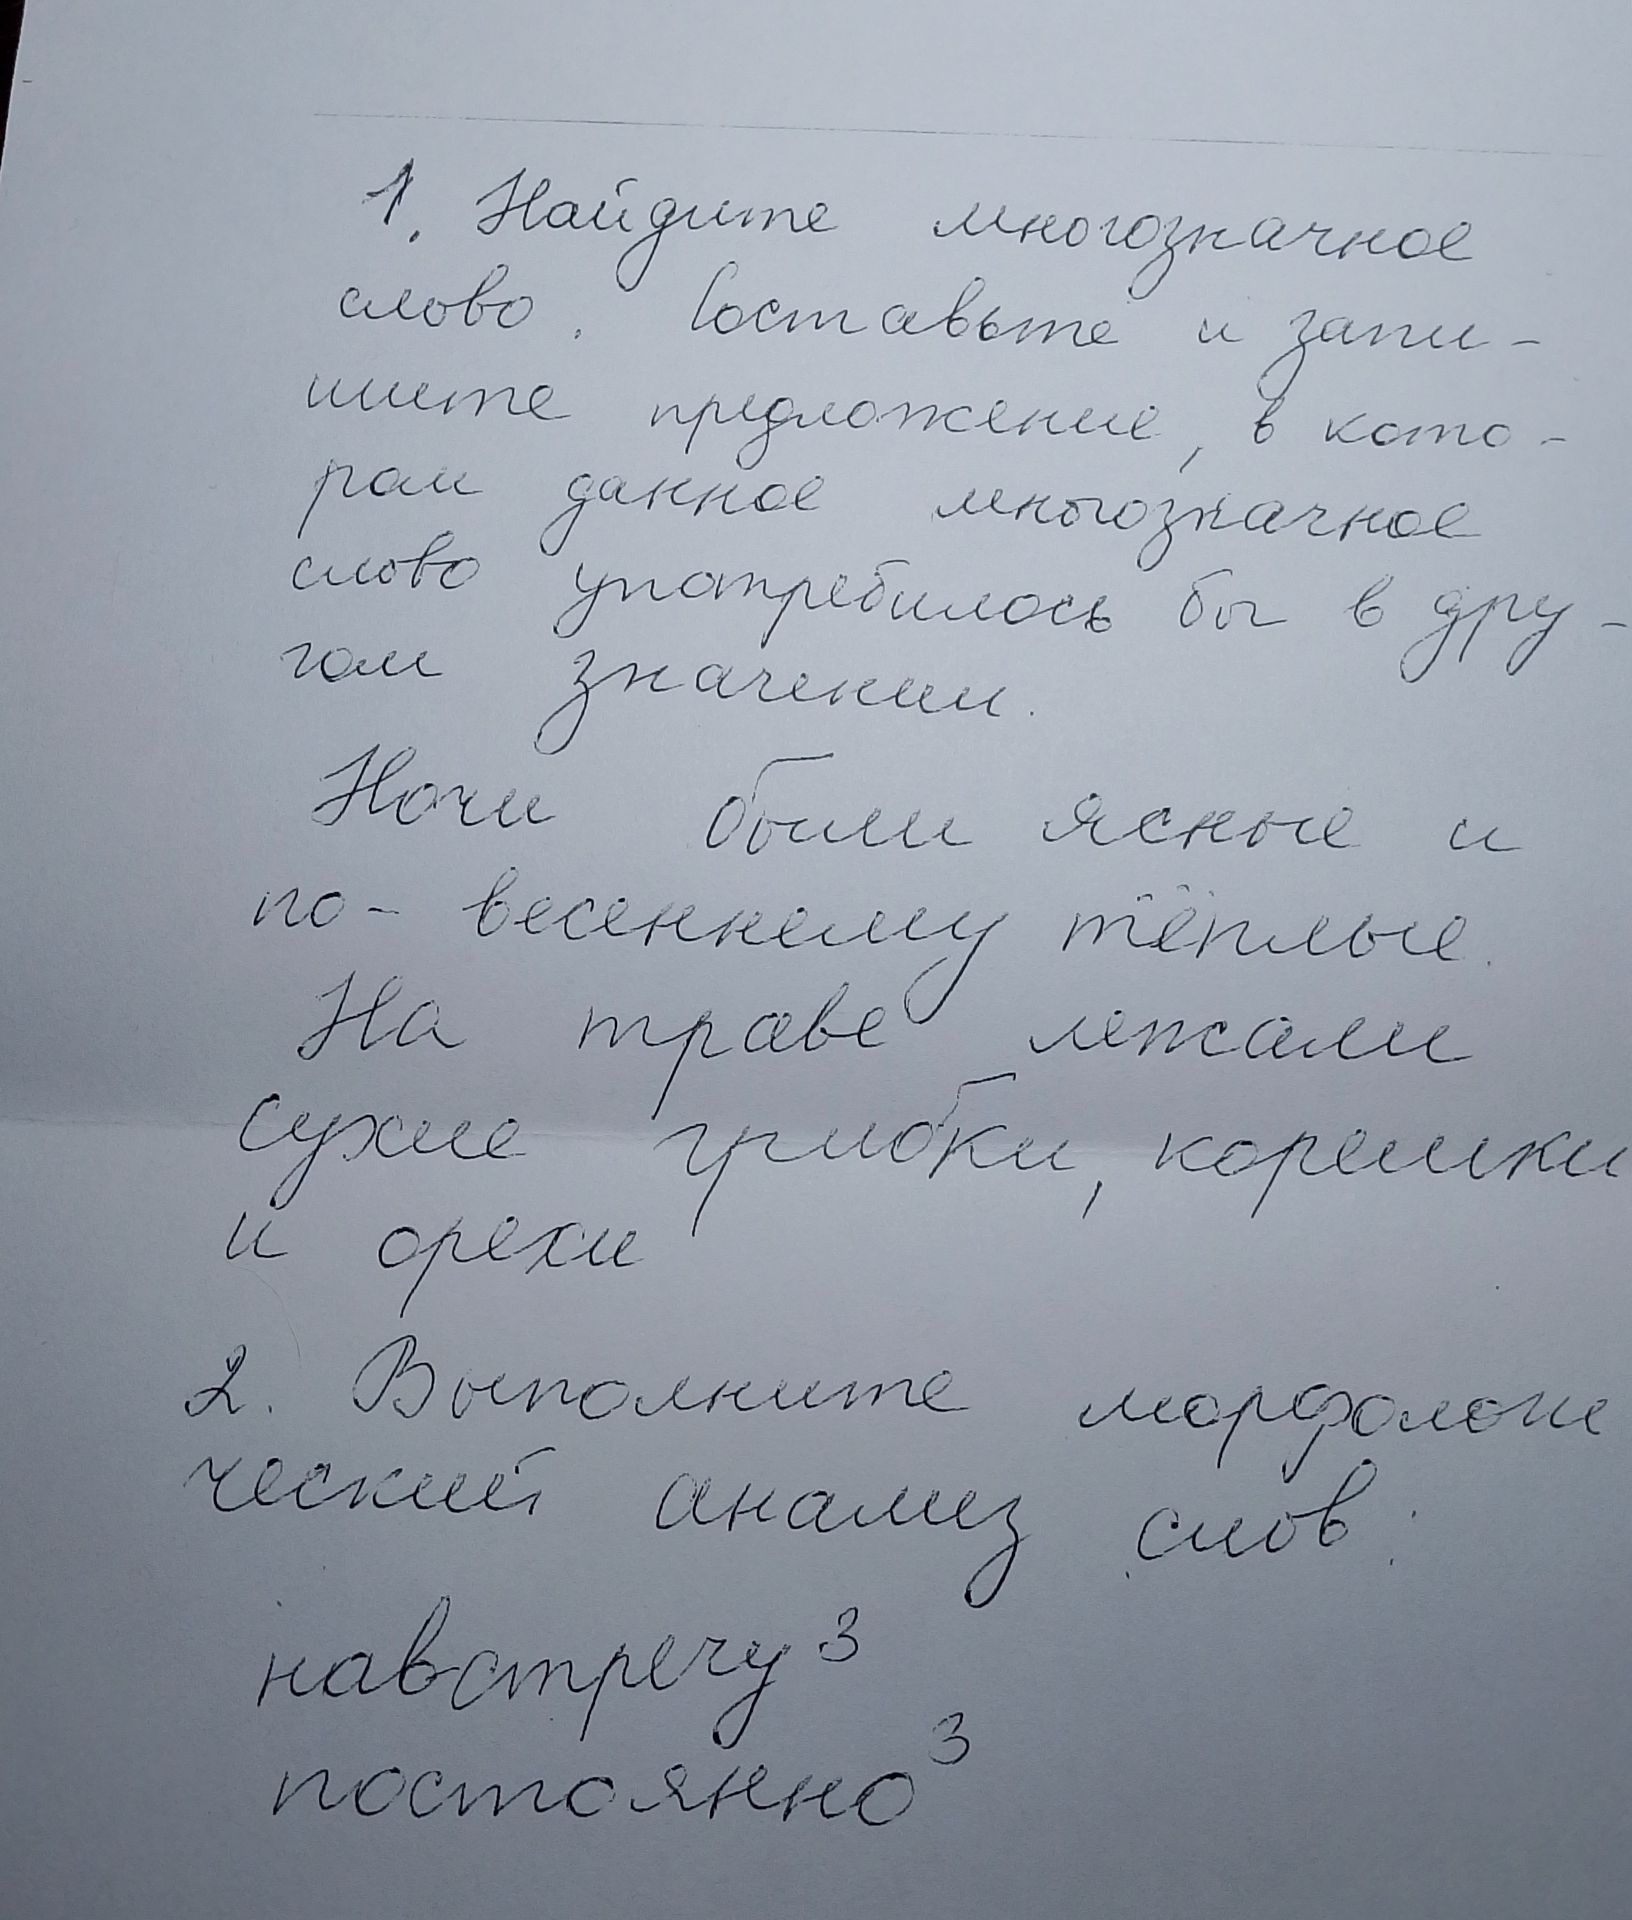 1. Найдите многозначное
слово. Составьте и запи-
шите предложение, в кото-
ром данное многозначное
слово употребилось бы в дру-
гом значении.
Ночи были ясные и
по-весеннему тёплые.
На траве лежали
сухие грибки, корешки
и орехи
2. Выполните морфологи
ческий анализ слов:
навстречу³
постоянно³